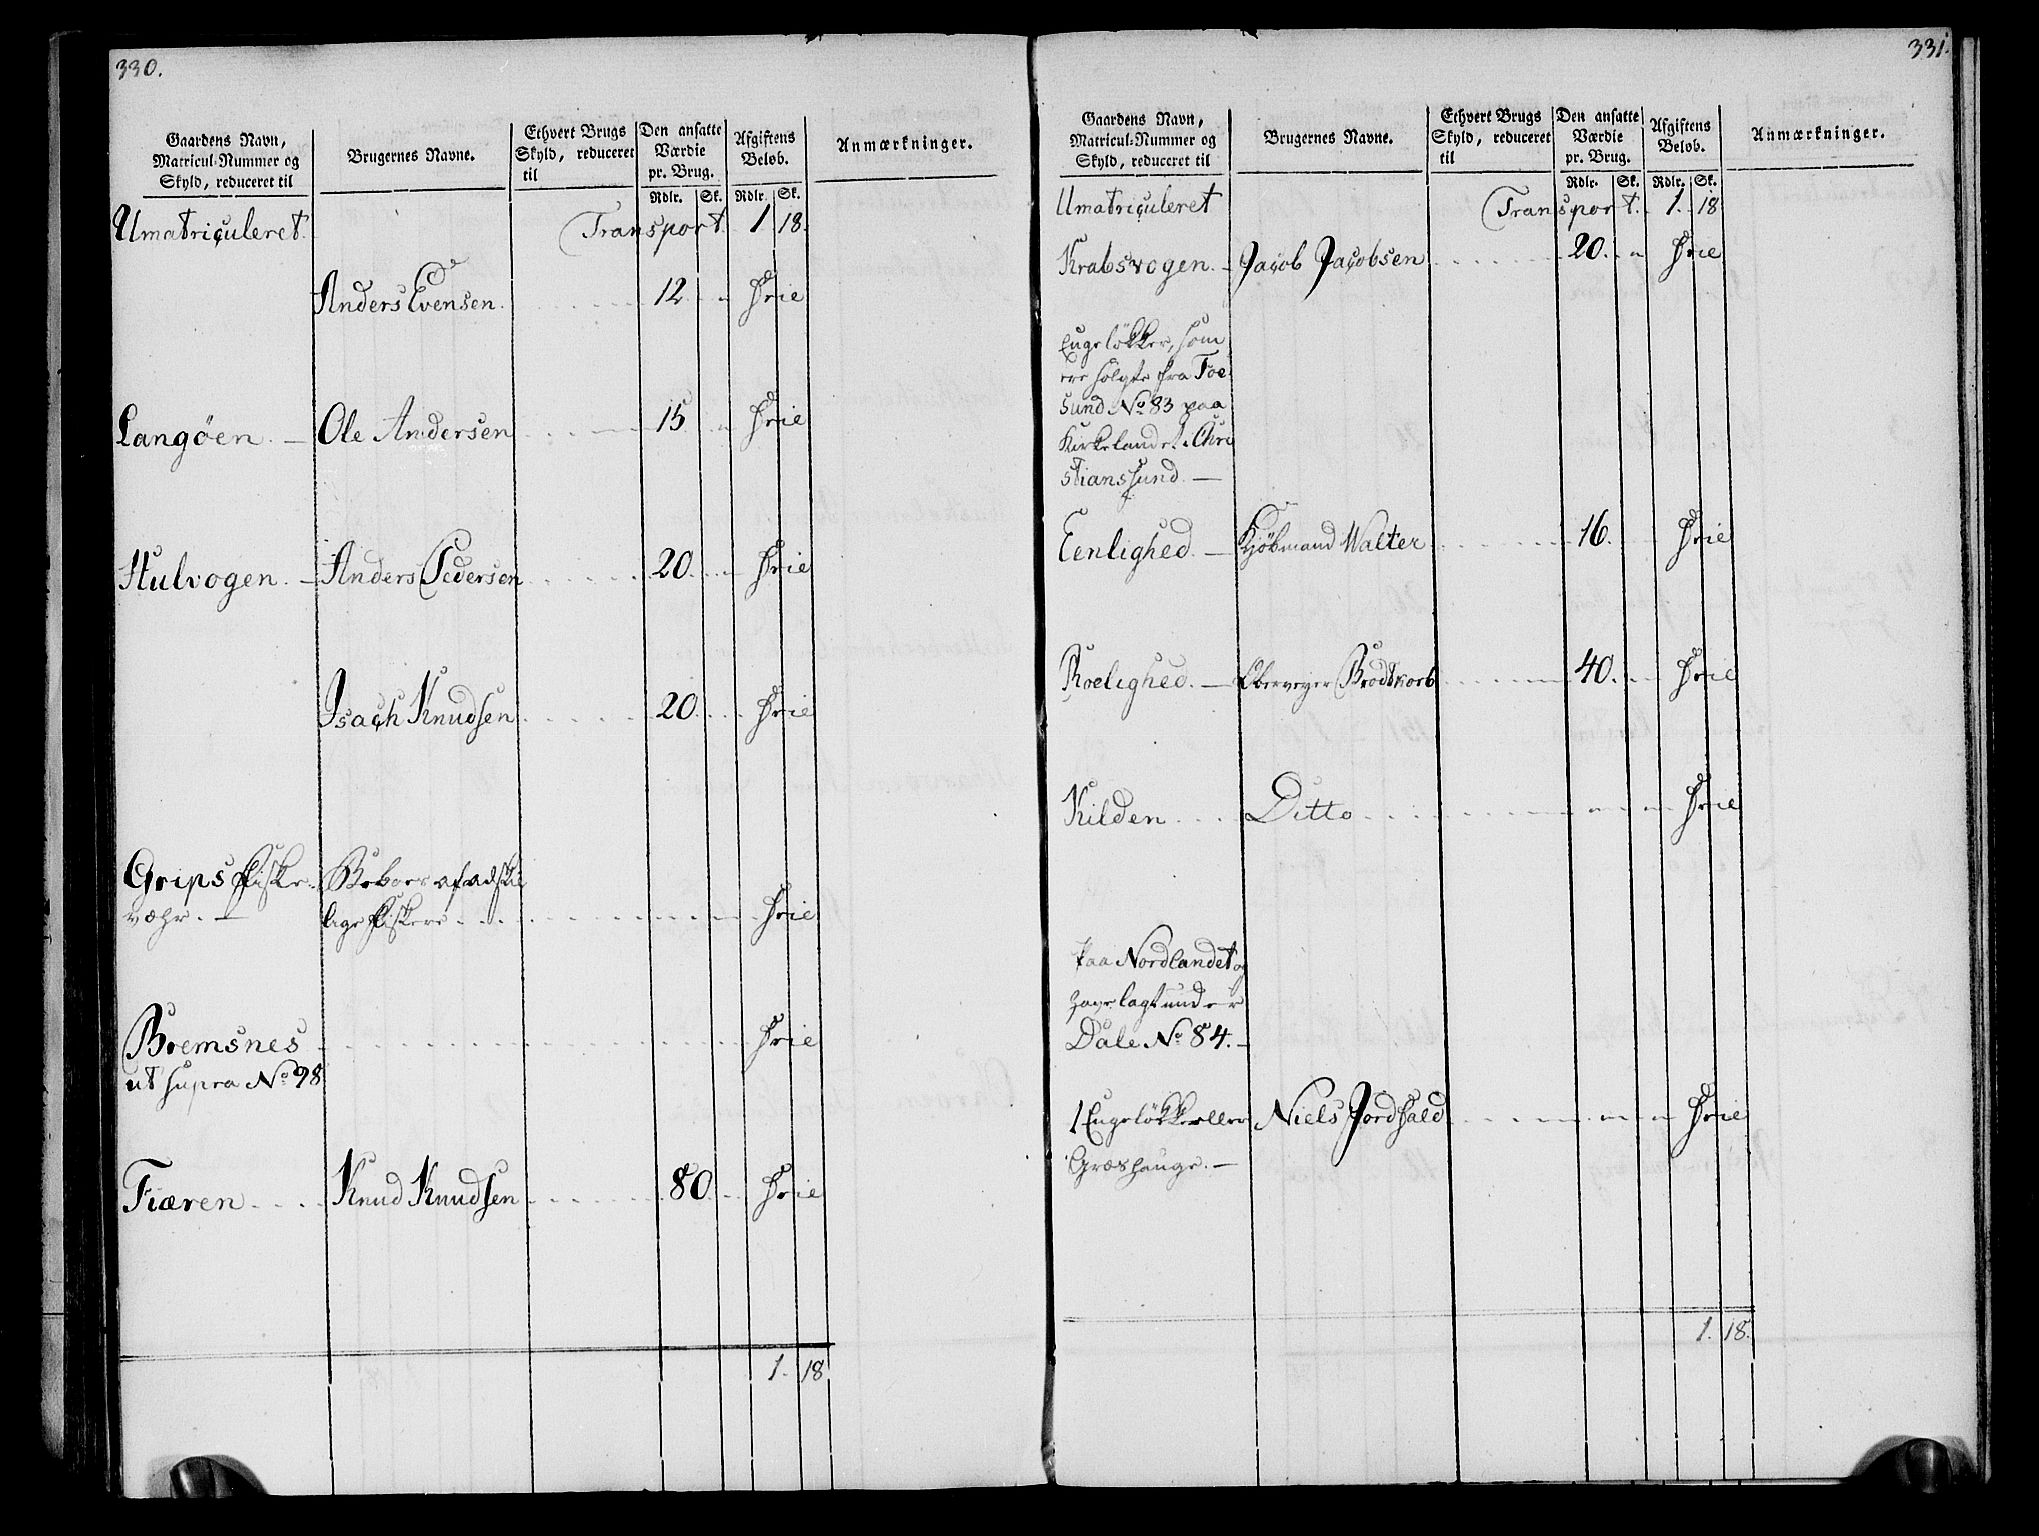 330.
Gaardens Navn,
Matricul-Nummer og
Skyld, reduceret til
Brugernes Navne.
Ethvert Brugs
Skyld, reduceret
til
Den ansatte
Værdie
pr. Brug.
Rdlr. Sk.
Afgiftens
Beløb.
Rdlr. Sk.
Anmærkninger.
Umatriculeret. Transport. 1 18.
Anders Evensen. 12. Frie
Langöen. Ole Andersen 15. Frie
Hulvogen. Anders Pedersen 20. Frie
Isach Knudsen 20. Frie
Grips Fiske- Beboes af adskil
væhr. lige Fiskere Frie
Bremsnes Frie
ut supra No 98
Fiæren Knud Knudsen 80. Frie
1. 18
331.
Gaardens Navn,
Matricul-Nummer og
Skyld, reduceret til
Brugernes Navne.
Ethvert Brugs
Skyld, reduceret
til
Den ansatte
Værdie
pr. Brug.
Rdlr. Sk.
Afgiftens
Beløb.
Rdlr. Sk.
Anmærkninger.
Umatriculeret Transport. 1. 18
Krabsvogen. Jacob Jacobsen 20. Frie
Engeløkker, som
ere solgte fra Foe
sund No 83 paa
Kirkelandet i Chri
stianssund.
Eenlighed. Kjöbmand Walter 16. Frie
Roelighed. Brodtkorb 40. Frie
Kilden Ditto Frie
Paa Nordlandet og
lagt under
Dale No 84.
1 Engeløkke eller Niels Jordhald Frie
Græshauge.
1. 18.